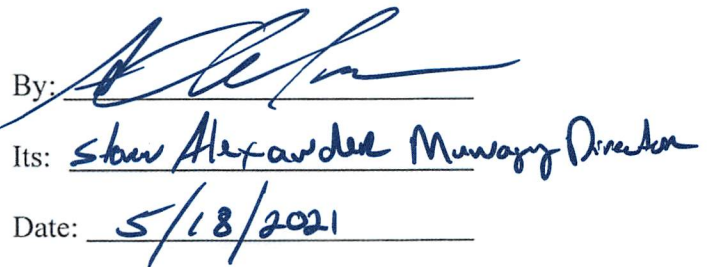 By:
Its: Alexander Managing Director
Date: 5/18/2021